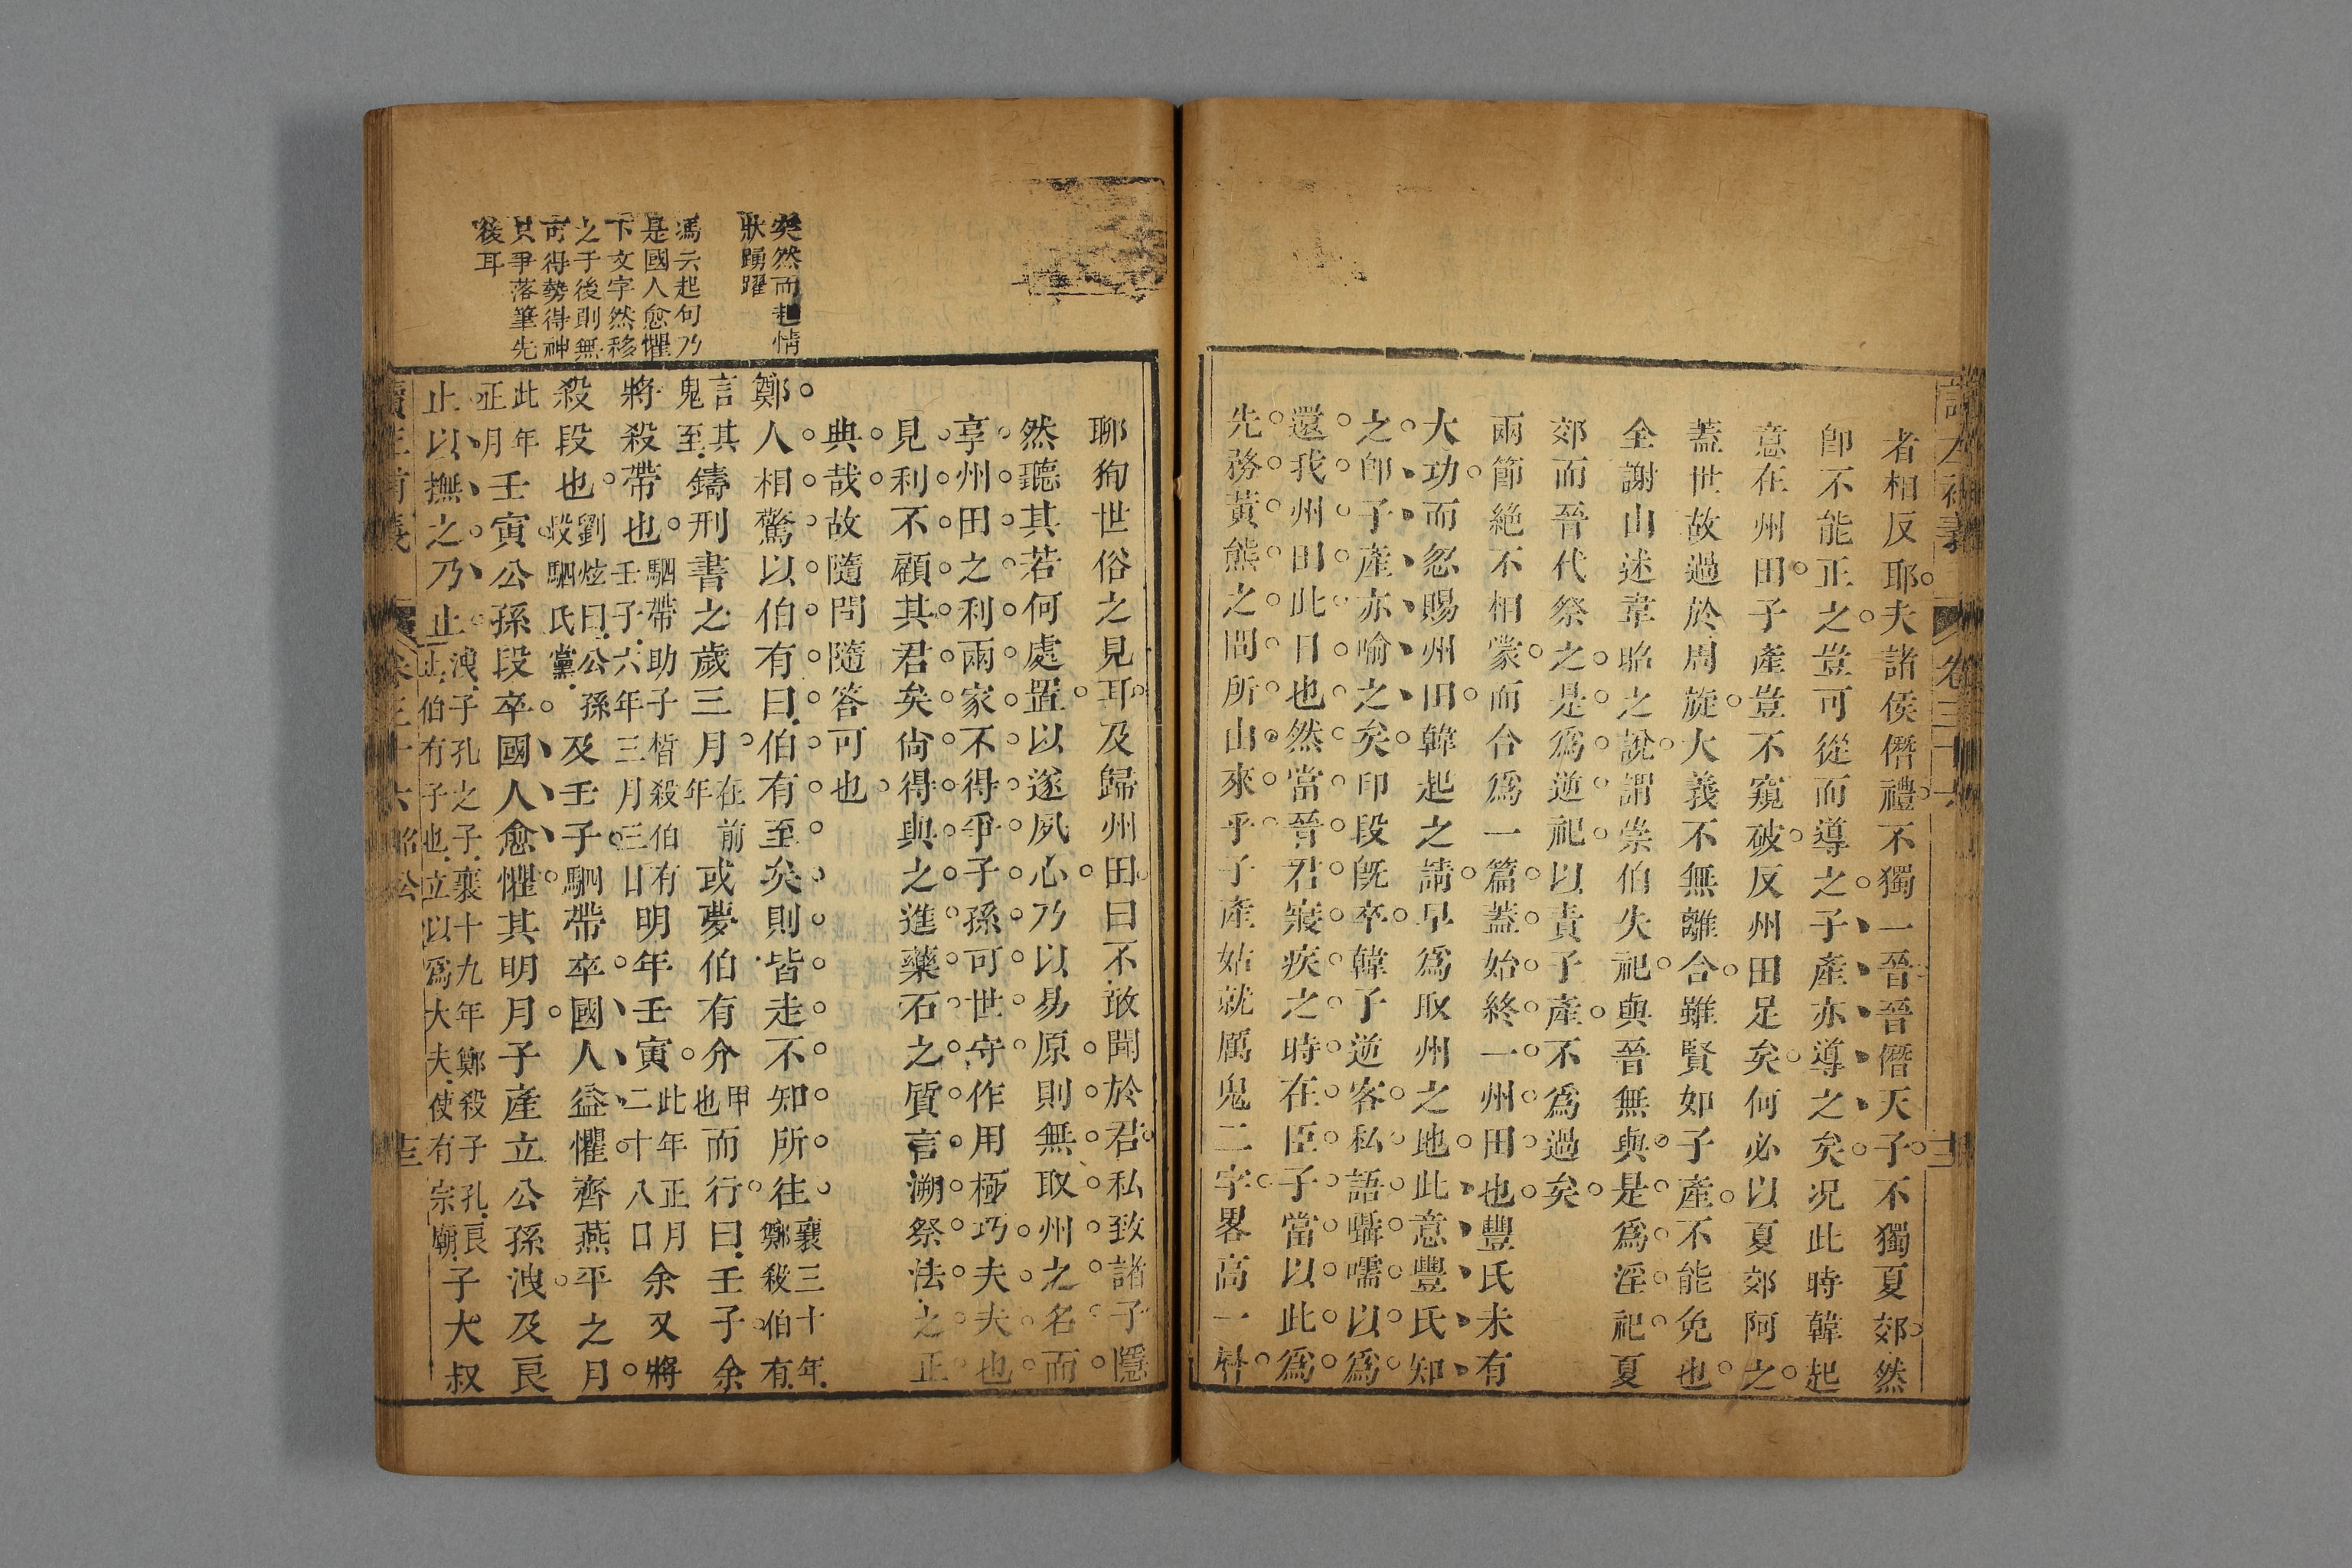 者相反耶夫諸侯僭禮不獨一晉晉僭天子不獨夏郊然
卽不能正之豈可從而導之子產亦導之矣况此時韓起
意在州田子產豈不窺破反州田足矣何必以夏郊阿之
蓋世故過於周旋大義不無離合雖賢如子產不能免也
全謝山述韋昭之說謂崇伯失祀與晉無與是爲淫祀夏
郊而晉代祭之是爲逆祀以責子產不爲過矣
兩節絕不相蒙而合爲一篇蓋始終一州田也豐氏未有
大功而忽賜州田韓起之請早爲取州之地此意豐氏知
之卽子產亦喻之矣印段旣卒韓子逆客私語囁嚅以爲
還我州田此日也然當晉君寢疾之時在臣子當以此爲
先務黃熊之問所由來乎子產姑就厲鬼二字畧高一籌
聊狥世俗之見耳及歸州田曰不敢聞於君私致諸子隱
然聽其若何處置以遂夙心乃以易原則無取州之名而
享州田之利兩家不得爭子孫可世守作用極巧夫夫也
見利不顧其君矣尙得與之進藥石之質言溯祭法之正
典哉故隨問隨答可也
鄭人相驚以伯有曰伯有至矣則皆走不知所往襄三十年
鄭殺伯有
言其
鬼至鑄刑書之歲三月在前
年或夢伯有介甲
也而行曰壬子余
將殺帶也駟帶助子晳殺伯有
壬子六年三月三日明年壬寅此年正月
二十八日余又將
殺段也劉炫曰公孫
段駟氏黨及壬子駟帶卒國人益懼齊燕平之月
此年
正月壬寅公孫段卒國人愈懼其明月子產立公孫洩及良
止以撫之乃止洩子孔之子襄十九年鄭殺子孔良
止伯有子也立以爲大夫使有宗廟子大叔
突然而起情
狀踴躍
馮云起句乃
是國人愈懼
下文字然移
之于後則無
可得勢得神
只爭落筆先
後耳